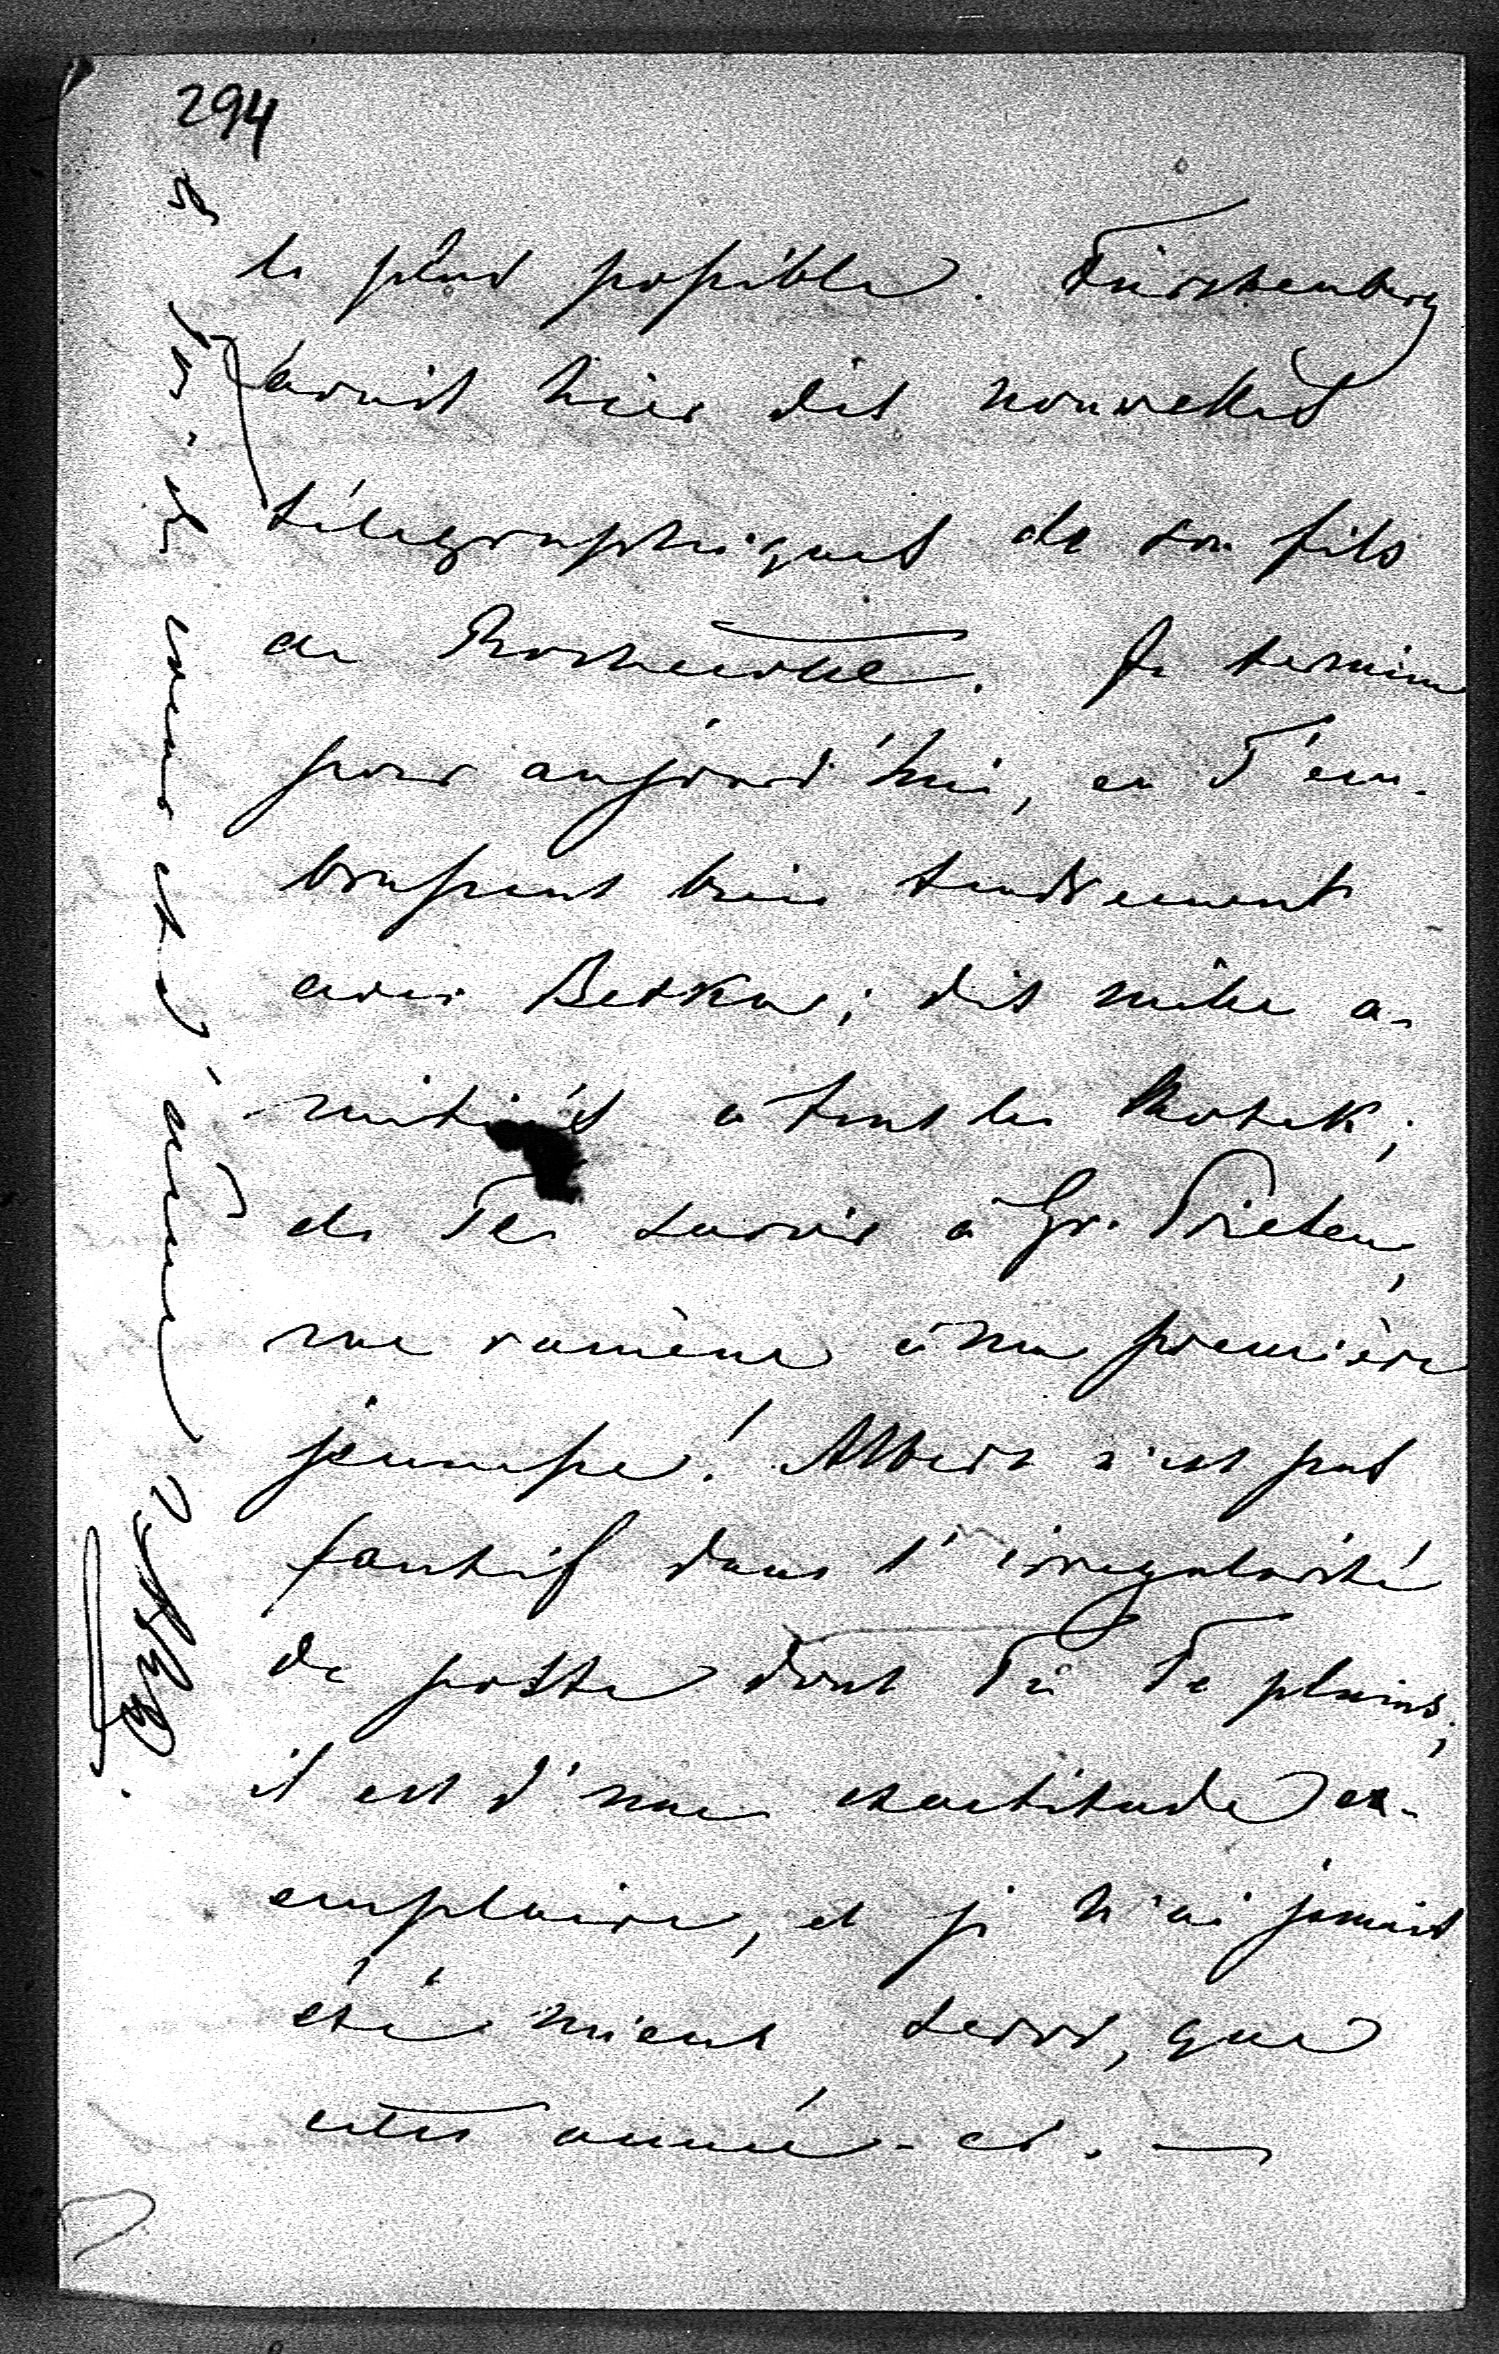 294
le plus possible. Fürstenberg
avait hier des nouvelles
télégraphiques de son fils
de Rochecotte. Je termine
pour aujourd'hui, en T'em-
brassant bien tendrement
avec Betka; dis mille a-
mitiés à tous les Kotek;
de Te savoir à Gr. Prielen,
me ramène à ma première
jeunesse! Albert n'est pas
fautif dans l'irregularité
de poste dont Tu Te plains;
il est d'une exactitude ex-
emplaire, et je n'ai jamais
été mieux servi, que
cette année-ci. —